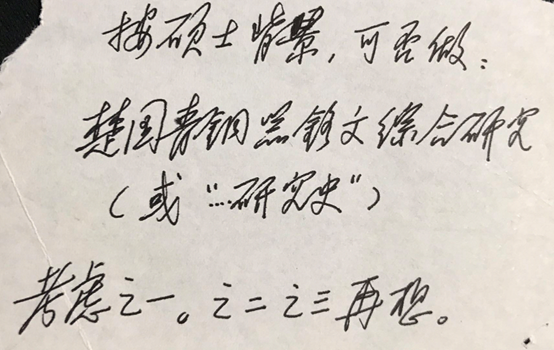 按硕士背景，可否做：
楚国青铜器铭文综合研究
（或“…研究史”）
考虑之一。之二之三再想。